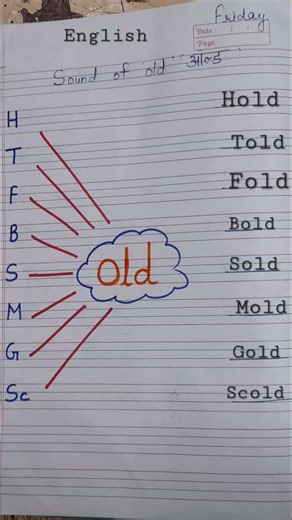 Friday
English
Date :
Page :
Sound of old "ओल्ड"
H
Hold
T
Told
F
Fold
B
Bold
Old
S
Sold
M
Mold
G
Gold
Sc
Scold